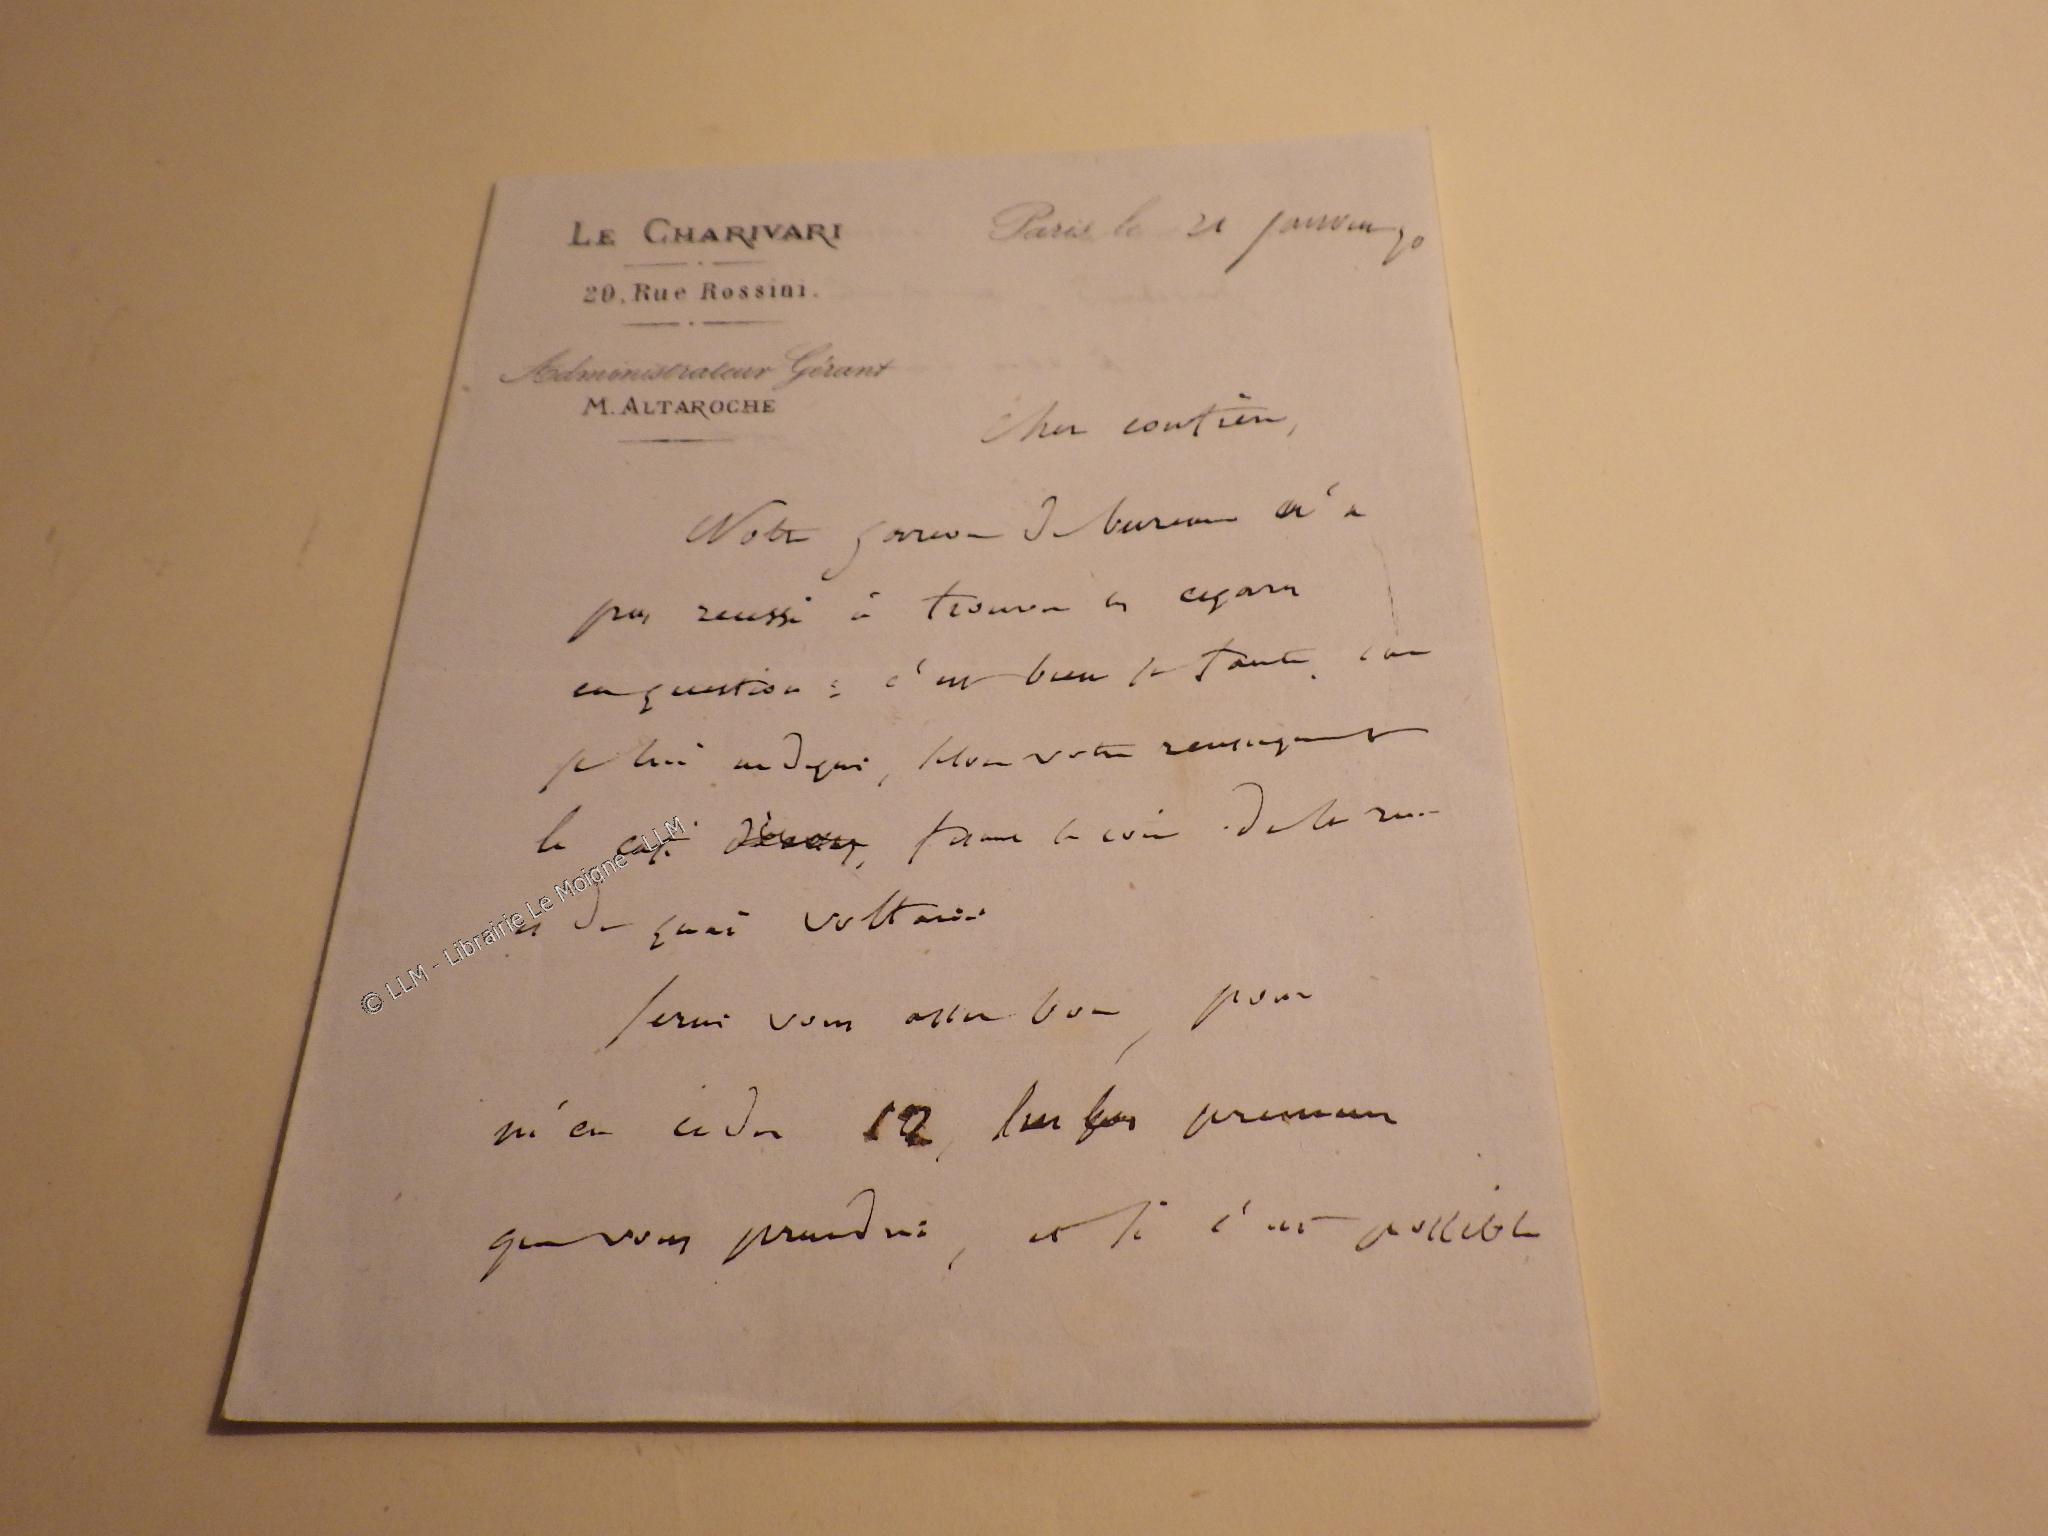 LE CHARIVARI
20, Rue Rossini.
Administrateur Gérant
M. ALTAROCHE
Paris le 21 janvier 70
Cher
Notre garcon de bureau n'a
pas reussi à trouver les cigares
en question : c'est bien sa faute, car
je lui indiquai, selon votre renseignement
le café faisant le coin de la rue
du quai voltaire
serez vous assez bon, pour
m'en ceder 12, sur les premiers
que vous prendrez, et si c'est possible
© LLM - Librairie Le Moigne - LLM